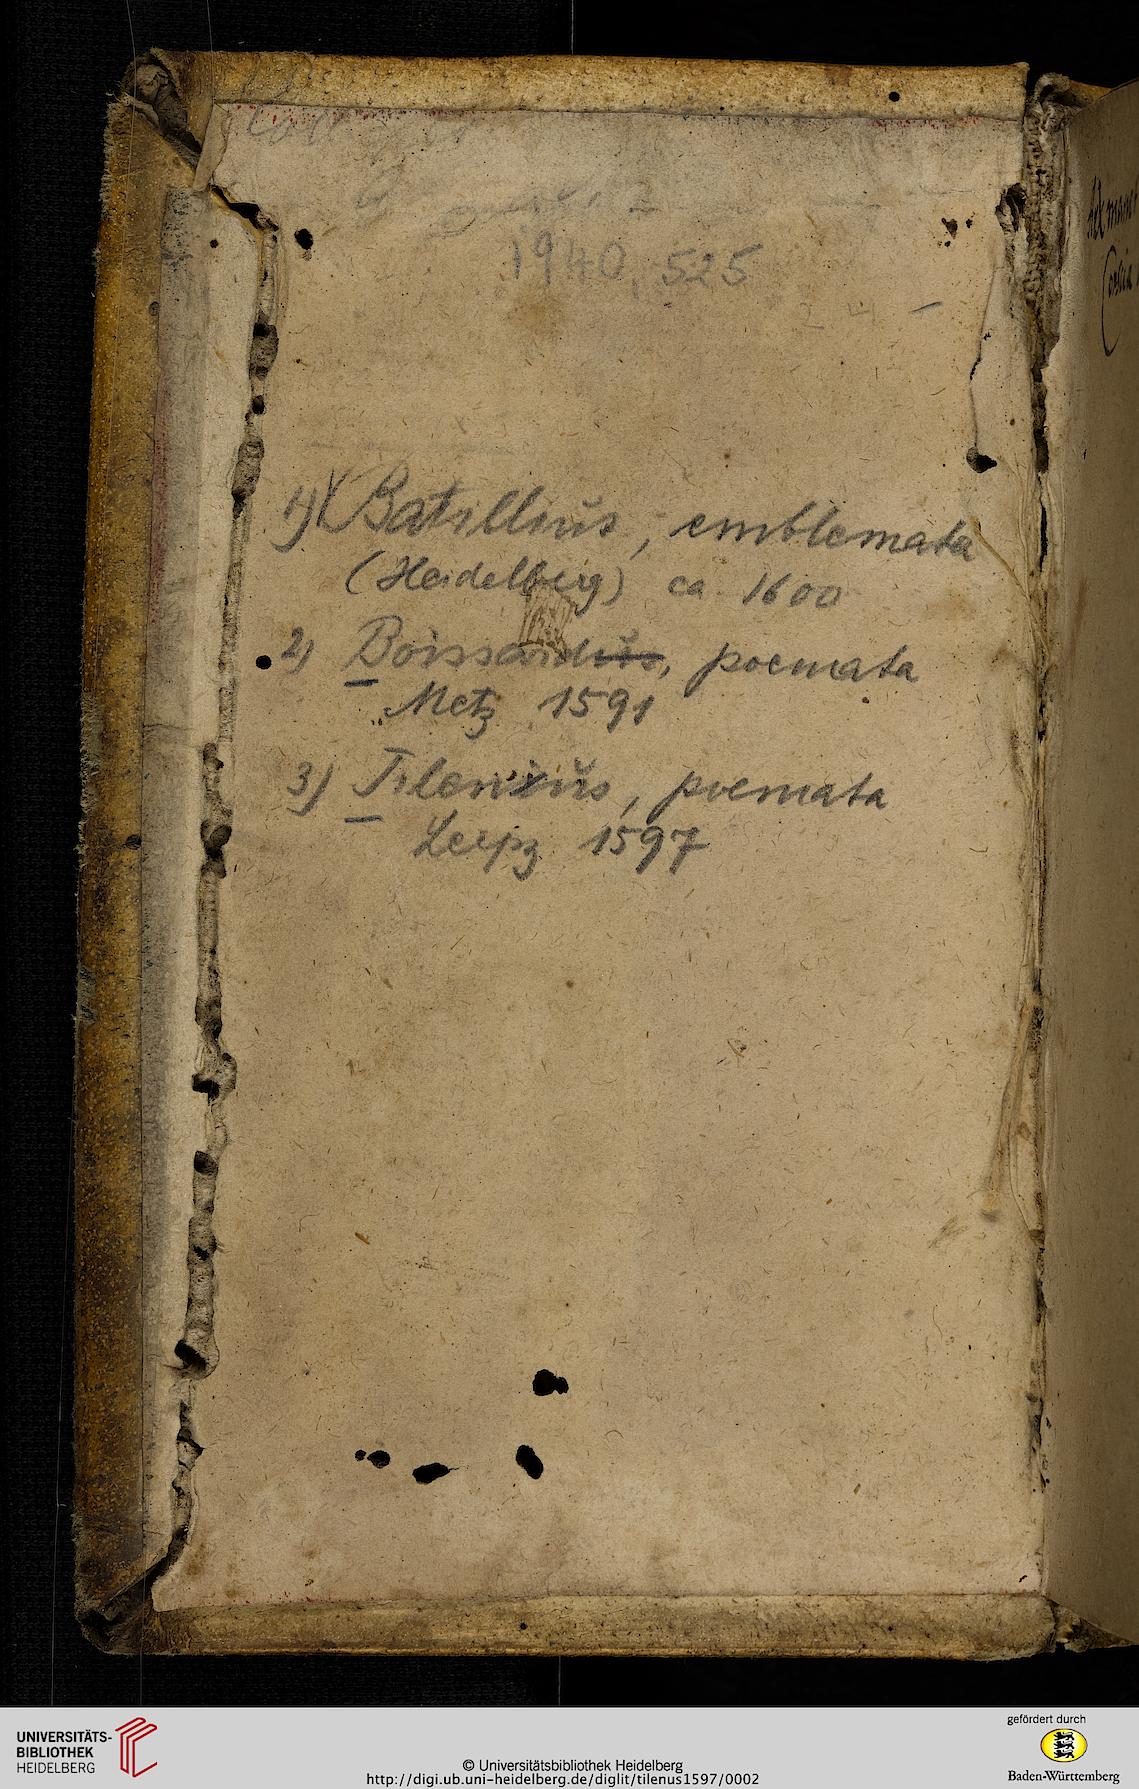 1940, 525
1) Batillius, emblemata
(Heidelberg) ca 1600
2) Boissardus, poemata
Metz 1591
3) Tilenius, poemata
Leipz 1597
UNIVERSITÄTS-
BIBLIOTHEK
HEIDELBERG
© Universitätsbibliothek Heidelberg
http://digi.ub.uni-heidelberg.de/diglit/tilenus1597/0002
gefördert durch
Baden-Württemberg